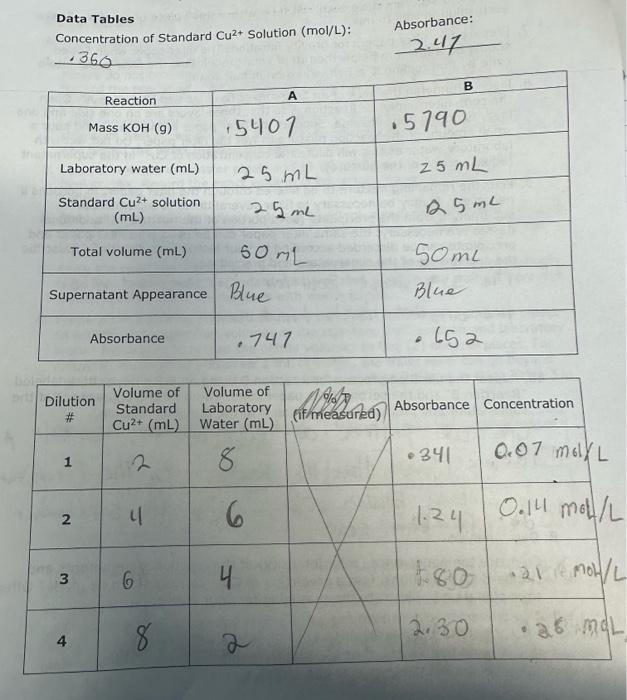 Data Tables
Concentration of Standard Cu²⁺ Solution (mol/L): Absorbance:
.360 2.47
Reaction A B
Mass KOH (g) .5407 .5790
Laboratory water (mL) 25 mL 25 mL
Standard Cu²⁺ solution (mL) 25 mL 25 mL
Total volume (mL) 50 mL 50 mL
Supernatant Appearance Blue Blue
Absorbance .747 .652
Dilution # Volume of Standard Cu²⁺ (mL) Volume of Laboratory Water (mL) (if measured) Absorbance Concentration
1 2 8 .341 0.07 mol/L
2 4 6 1.24 0.14 mol/L
3 6 4 1.80 .21 mol/L
4 8 2 2.30 .28 mol